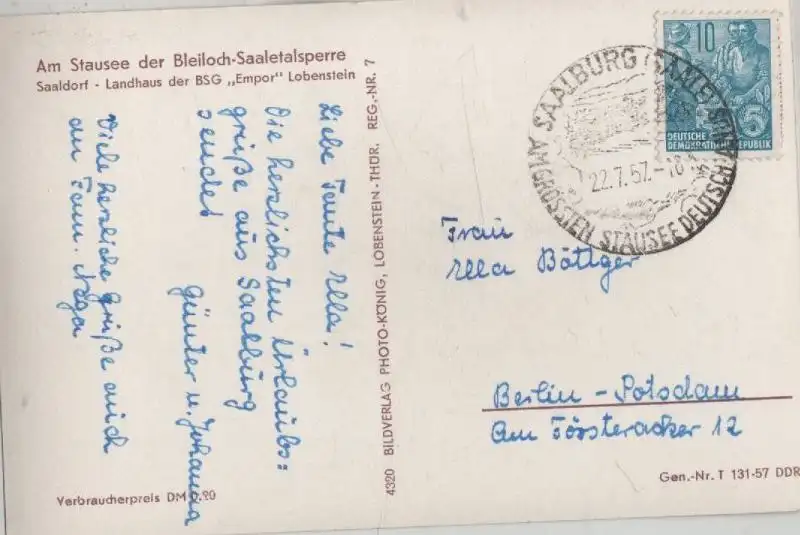 Am Stausee der Bleiloch-Saaletalsperre
Saaldorf - Landhaus der BSG „Empor" Lobenstein
Liebe Tante Ulla!
Die herzlichsten Urlaubs=
grüße aus Saalburg
sendet
Günter u. Johanna
Viele herzliche Grüße auch
an Fam.
Verbraucherpreis DM 0.20
4320 BILDVERLAG PHOTO-KÖNIG, LOBENSTEIN-THÜR. REG.-NR. 7
10
5
DEUTSCHE
DEMOKRATISCHE REPUBLIK
SAALBURG (SAALE)
22.7.57.-18
AM GRÖSSTEN STAUSEE DEUTSCHLANDS
Frau
Ulla Böttger
Berlin - Potsdam
Am Försteracker 12
Gen.-Nr. T 131-57 DDR